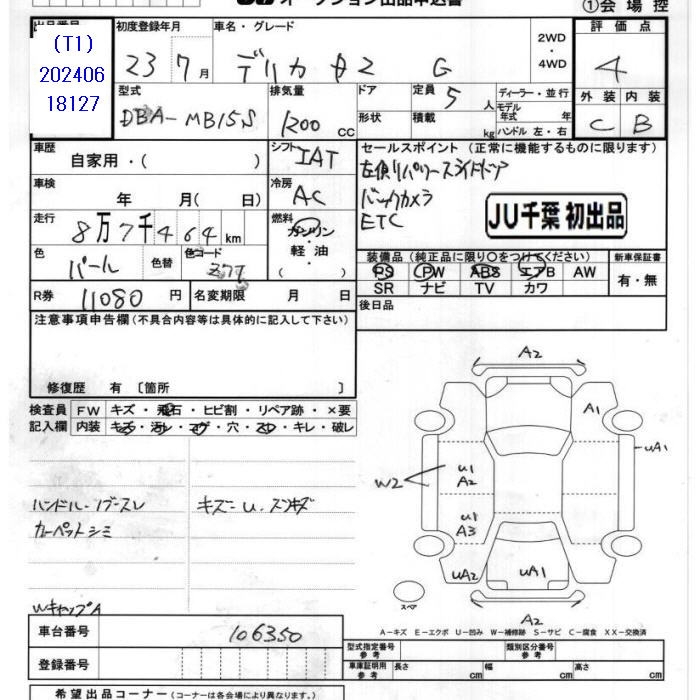 オークション出品申込書
①会場控
出品番号
(T1)
202406
18127
初度登録年月
車名・グレード
23 7月
デリカ D2 G
2WD
・
4WD
評価点
4
型式
DBA-MB15S
排気量
1200 cc
ドア
定員 5 人
ディーラー・並行
モデル年式 年
ハンドル 左・右
形状
積載 kg
外装 内装
C B
車歴
自家用・( )
シフト
IAT
セールスポイント (正常に機能するものに限ります)
左側リパワースライドドア
バックカメラ
ETC
JU千葉 初出品
車検
年 月( 日)
冷房
AC
走行
8万7千464km
燃料
ガソリン
軽油
( )
色
パール
色替
色コード
Z7T
装備品 (純正品に限り○をつけてください)
PS PW ABS エアB AW
SR ナビ TV カワ
新車保証書
有・無
R券
11080 円
名変期限 月 日
後日品
注意事項申告欄(不具合内容等は具体的に記入して下さい)
修復歴 有 〔箇所 〕
検査員 記入欄
FW キズ・飛石・ヒビ割・リペア跡・×要
内装 キズ・汚レ・コゲ・穴・スレ・キレ・破レ
ハンドル・ノブースレ
カーペットシミ
WキャップA
キズー U. スンキズ
A2
A1
uA1
W2
u1
A2
u1
A3
uA2
uA1
A2
スペア
A-キズ E-エクボ U-凹み W-補修跡 S-サビ C-腐食 XX-交換済
車台番号
106350
登録番号
型式指定番号
参考
類別区分番号
参考
車庫証明用
参考
長さ cm
幅 cm
高さ cm
希望出品コーナー(コーナーは各会場により異なります。)